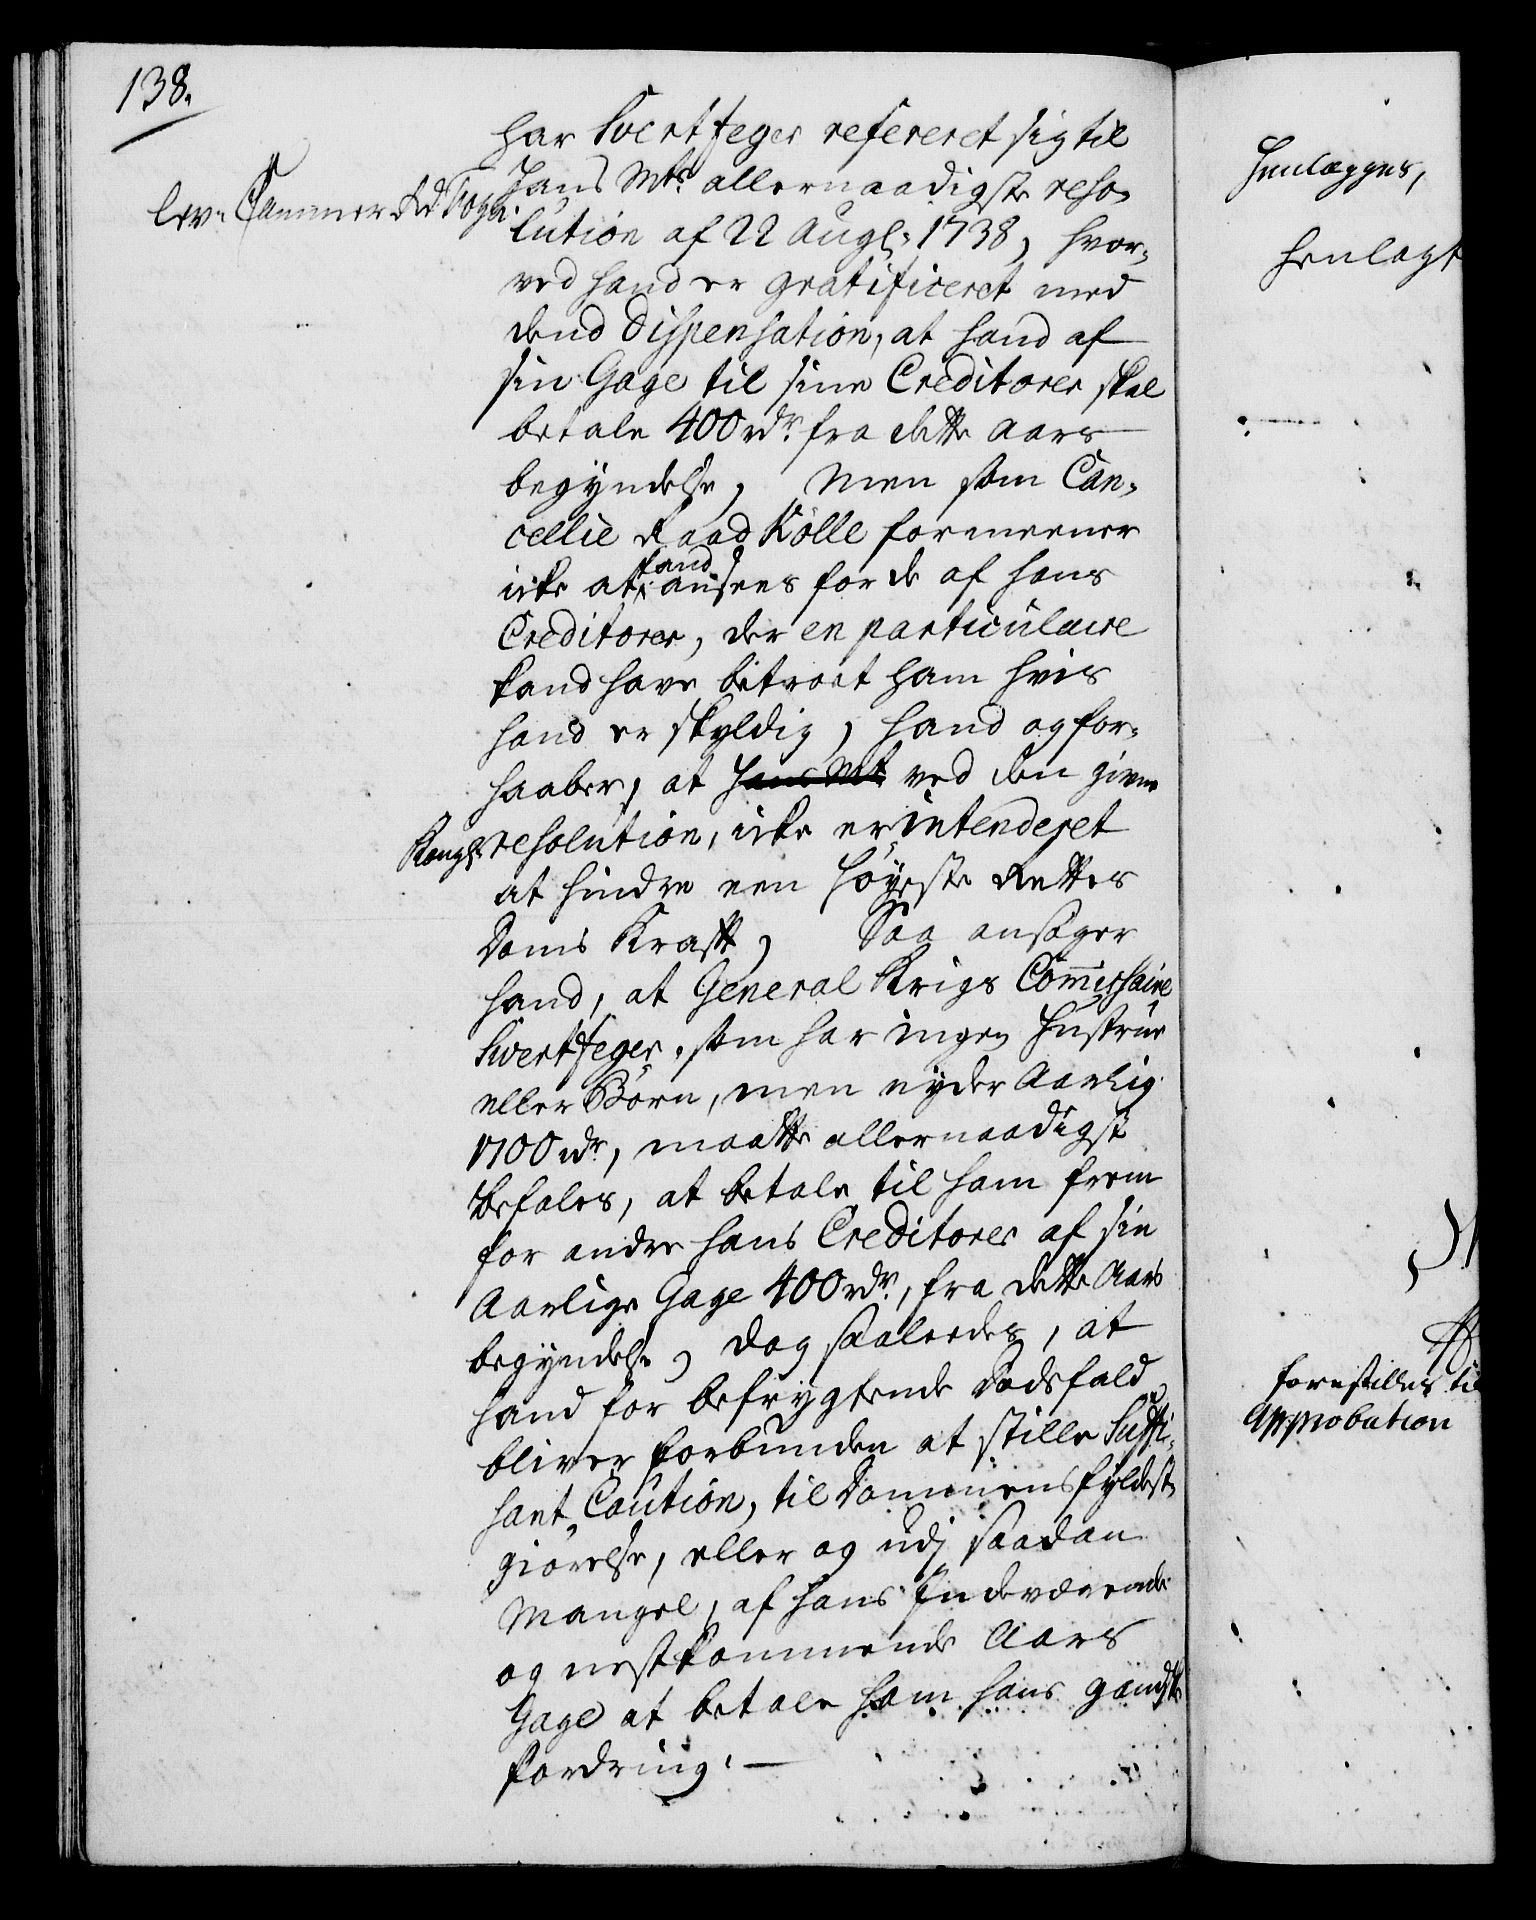 138.
har Svertfeger refereret sig til
Hans Mts. allernaadigste reso-
lution af 22 Augl: 1738, hvor-
ved hand er gratificeret med
dend Dispensation, at hand af
sin Gage til sine Creditorer skal
betale 400 rdr. fra dette Aars
begyndelse, Men som Can-
cellie Raad Kölle formeener
icke at kand ansees for de af hans
Creditorer, der en particulaire
kand have betroet ham hvis
hand er skyldig, hand og for-
haaber, at Hans Mt. ved den givne
Kongl: resolution, icke er intenderet
at hindre een Höyeste Rettes
Doms Krafft, Saa ansöger
hand, at General Krigs Commissaire
Svertfeger, som har ingen Hustrue
eller Börn, men nyder Aarlig
1700 rdr., maatte allernaadigst
befales, at betale til ham frem
for andre hans Creditorer af sin
Aarlige Gage 400 rdr., fra dette Aars
begyndelse, dog saaledes, at
hand for befrygtende Dödsfald
bliver forbunden at stille Suffi-
sant Caution, til Dommens fyldest-
giörelse, eller og udj saadan
Mangel, af hans Indeværende
og nestkommende Aars
Gage at betale ham hans gandske
fordring.—
lev: Cammer Rd
Henlægges,
Henlagt
forestilles til
Approbation